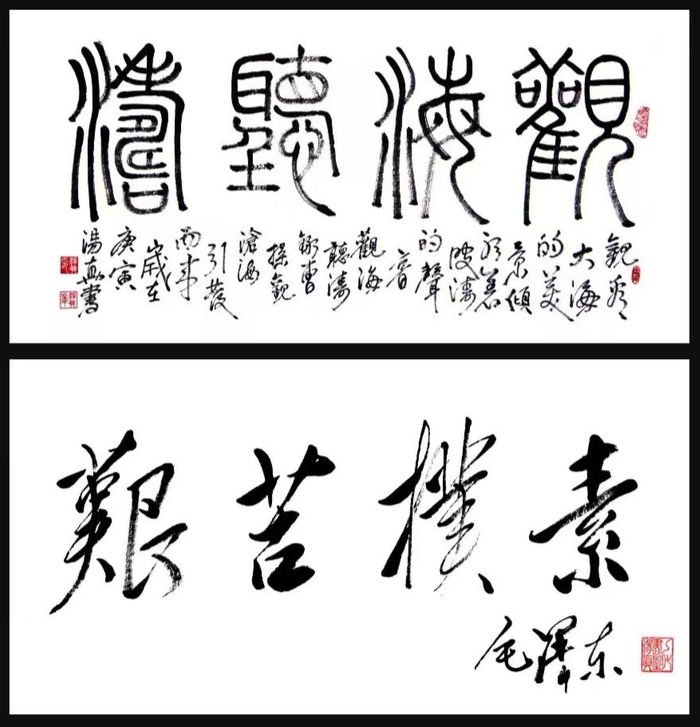 觀海聽濤
觀看
大海
的美
景傾
波濤
的聲
音
觀海
聽濤
曹
操觀
滄海
引發
而來
歲在
庚寅
湯書
艱苦樸素
毛澤東